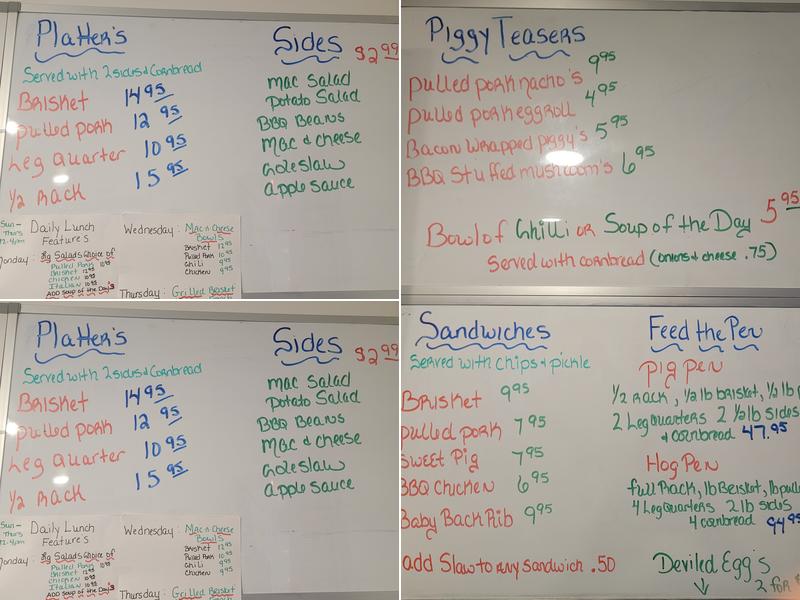 Platter's
Served with 2 sides & Cornbread
Brisket 14 95
pulled pork 12 95
Leg Quarter 10 95
1/2 Rack 15 95
Sides $2 99
Mac Salad
Potato Salad
BBQ Beans
Mac & cheese
Coleslaw
apple sauce
Sun-
Thurs
12-4pm
Daily Lunch
Features
Monday: Big Salads Choice of
Pulled Pork 10 95
Brisket 12 95
chicken 10 95
Italian 10 95
ADD Soup of the Day
Wednesday: Mac n Cheese
Bowls
Brisket 12 95
Pulled Pork 10 95
Chili 9 95
Chicken 9 95
Thursday: Grilled Brisket
Piggy Teasers
pulled pork nacho's 9 95
pulled pork eggroll 4 95
Bacon Wrapped piggy's 5 95
BBQ Stuffed mushroom's 6 95
Bowl of Chilli or Soup of the Day 5 95
Served with cornbread (onions & cheese .75)
Platter's
Served with 2 sides & Cornbread
Brisket 14 95
pulled pork 12 95
Leg Quarter 10 95
1/2 Rack 15 95
Sides $2 99
Mac Salad
Potato Salad
BBQ Beans
Mac & cheese
Coleslaw
apple sauce
Sun-
Thurs
12-4pm
Daily Lunch
Features
Monday: Big Salads Choice of
Pulled Pork 10 95
Brisket 12 95
chicken 10 95
Italian 10 95
ADD Soup of the Day
Wednesday: Mac n Cheese
Bowls
Brisket 12 95
Pulled Pork 10 95
Chili 9 95
Chicken 9 95
Thursday: Grilled Brisket
Sandwiches
Served with chips & pickle
Brisket 9 95
pulled pork 7 95
Sweet Pig 7 95
BBQ Chicken 6 95
Baby Back Rib 9 95
add Slaw to any sandwich .50
Feed the Pen
Pig Pen
1/2 Rack, 1/2 lb brisket, 1/2 lb
2 Leg Quarters 2 1/2 lb sides
& cornbread 47.95
Hog Pen
full Rack, lb Brisket, lb pull
4 Leg Quarters 2 lb sides
4 cornbread 94 95
Deviled Egg's
2 for